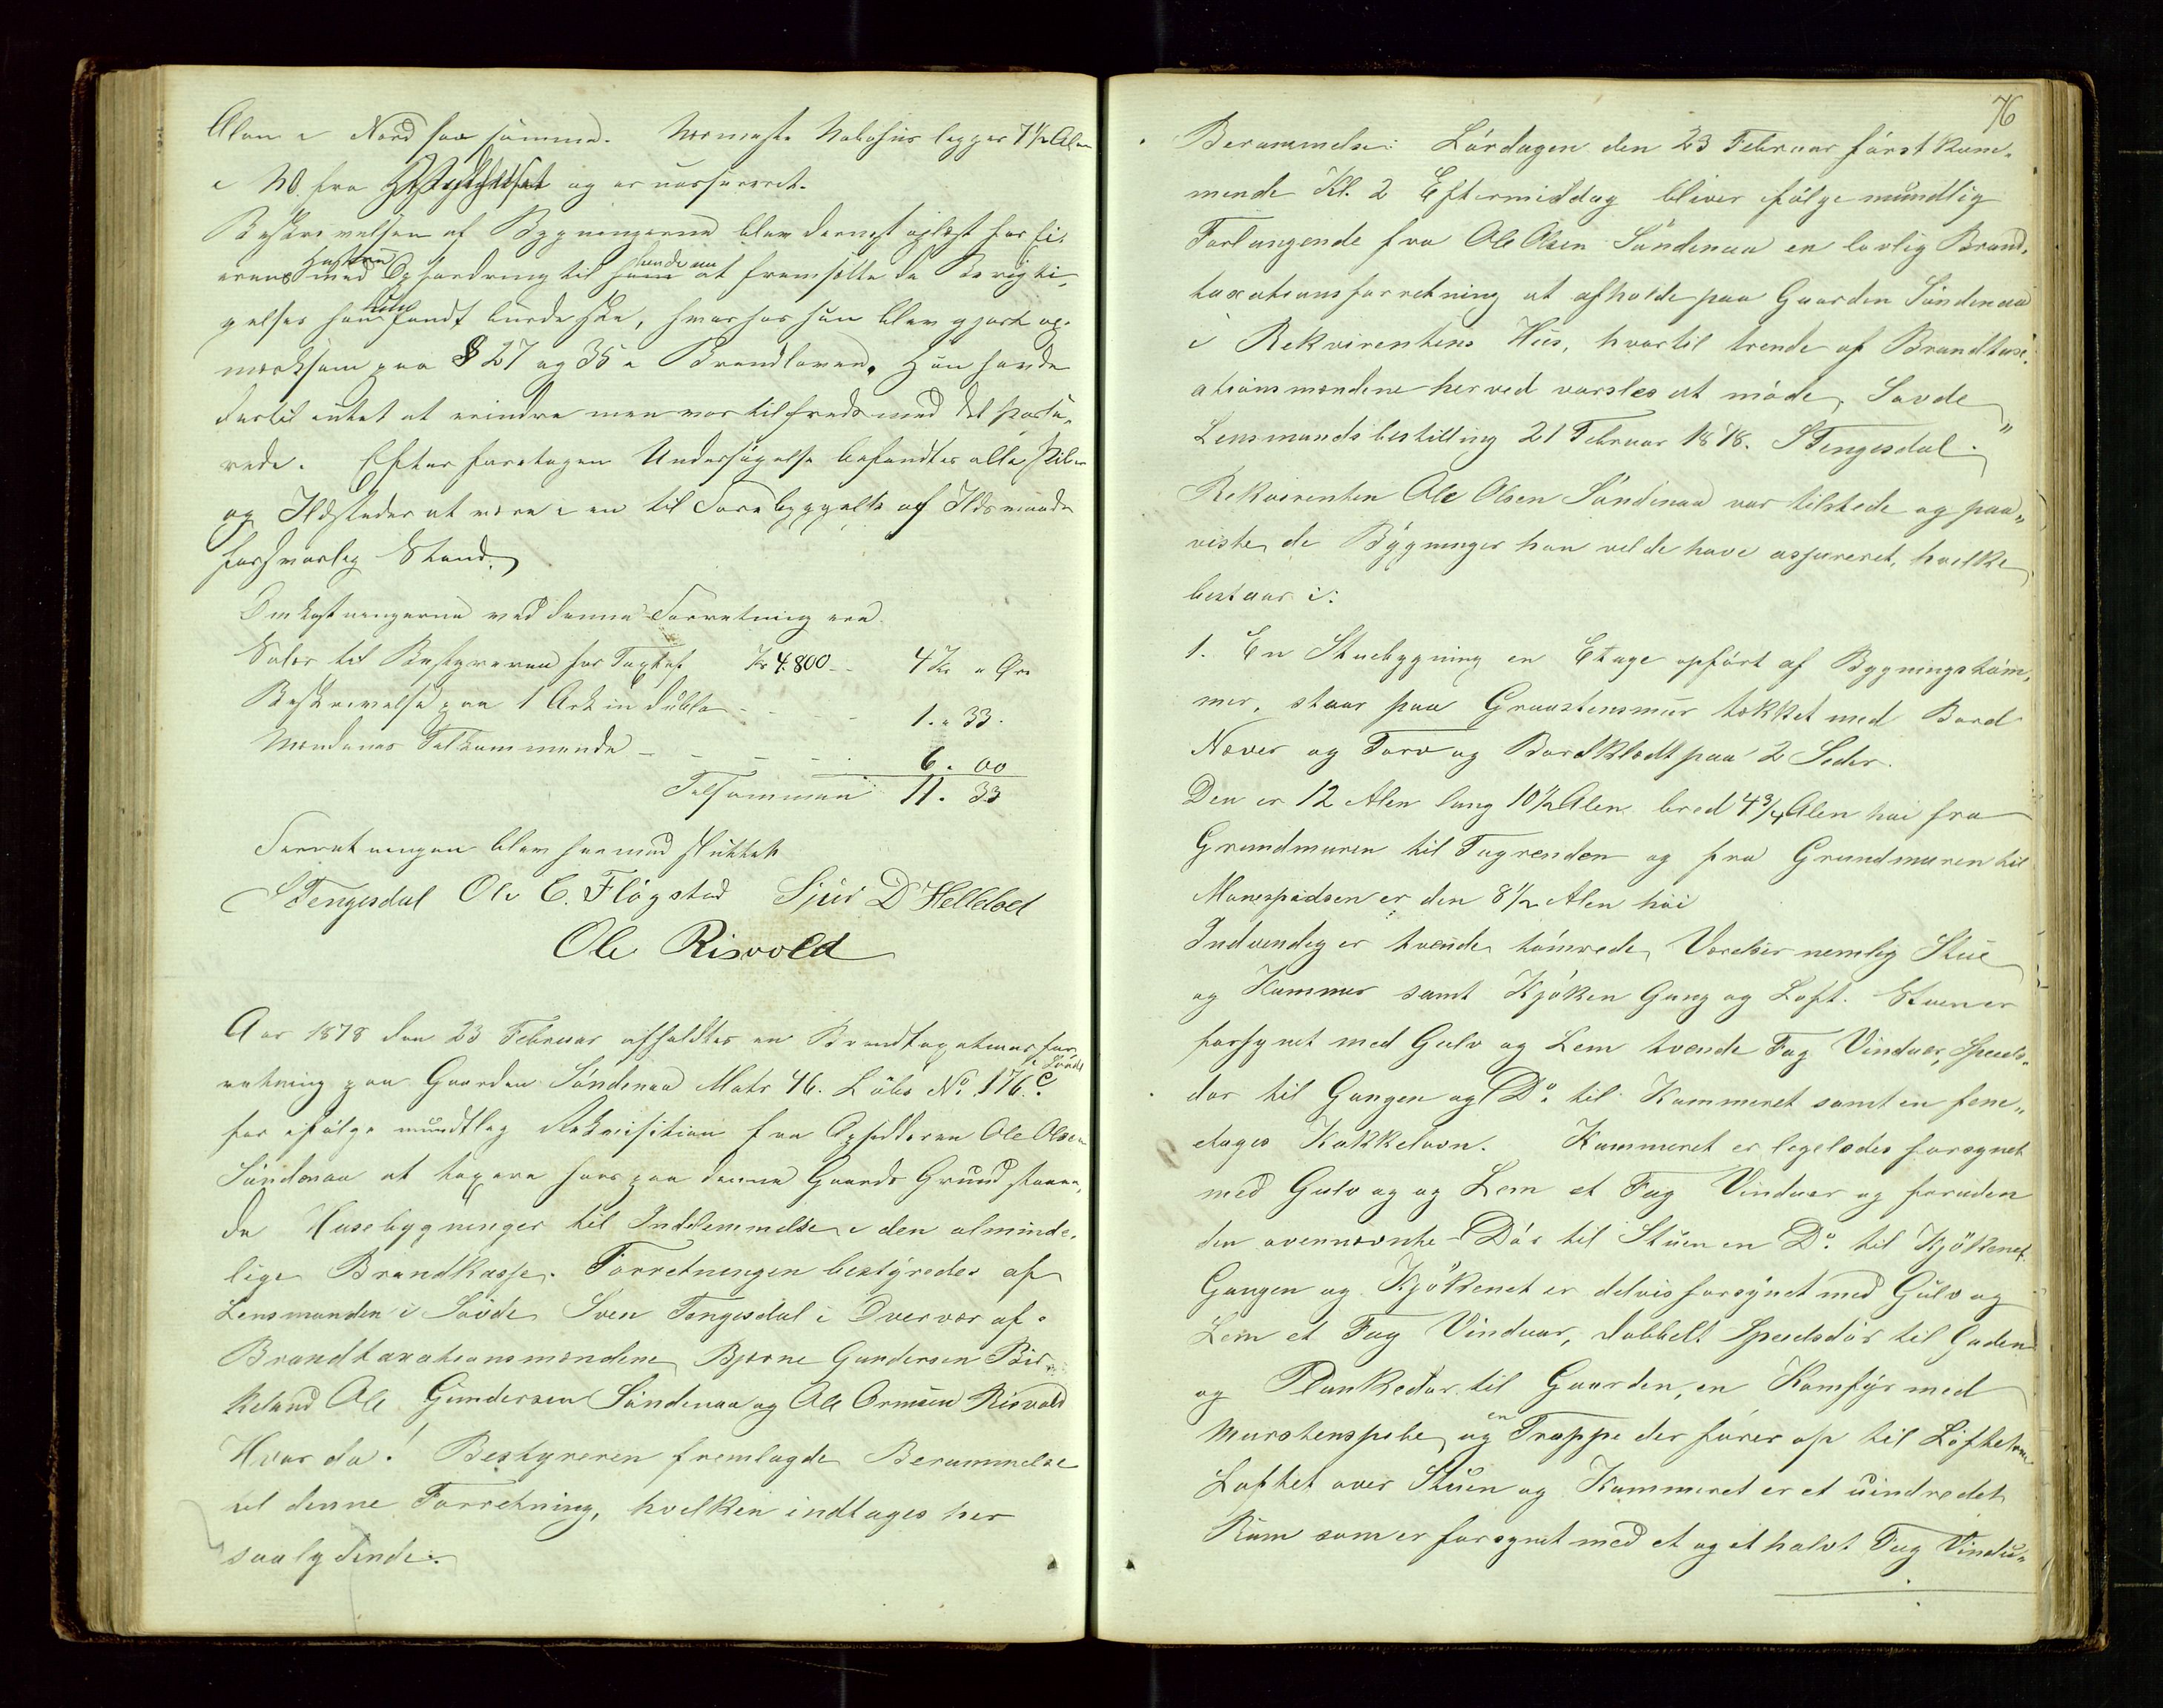 Alen i Nord fra samme. Nærmeste Nabohus ligger 7 1/2 Alen
i NO. fra og er uassureret.
Beskrivelsen af Bygningerne blev dernæst oplæst for Ei-
erens Hustru med Opfordring til hende at fremsætte de Berigti-
gelser hun fandt burde ske, hvorhos hun blev gjort op-
mærksom paa § 27 og 35 i Brandloven. Hun havde
dertil intet at erindre men var tilfreds med det passe-
rede. Efter foretagen Undersøgelse befandtes alle Piber
og Ildsteder at være i en til Forebyggelse af Ildsvaade
forsvarlig Stand.
Omkostningerne ved denne Forretning ere
Salær til Bestyreren for Taxt af Kr 4.800 - - 4 Kr " Øre
Beskrivelse paa 1 Ark in dublo - - - 1. " 33.
Mændenes Tilkommende - - - - 6. 00
Tilsammen 11. 33
Forretningen blev hermed sluttet
S Tengesdal Ole C. Fløgstad Sjur D Helleland
Ole Risvold
Aar 1878 den 23 Februar afholdtes en Brandtaxationsfor-
retning paa Gaarden Søndenaa Matr 46. Løbe No. 176 c.
for ifølge mundtlig Rekvisition fra Opsidderen Ole Olsen
Søndenaa at taxere hans paa denne Gaards Grund staaen-
de Husebygninger til Indlemmelse i den alminde-
lige Brandkasse. Forretningen bestyredes af
Lensmanden i Sövde Sven Tengesdal i Overvær af
Brandtaxationsmændene Bjørne Gundersen Bir-
keland Ole Gundersen Søndenaa og Ole Ormsen Risvold
Hvor da! Bestyreren fremlagde Berammelse
til denne Forretning, hvilken indtages her
saalydende:
76
Berammelse: Lørdagen den 23 Februar først kom-
mende Kl. 2 Eftermiddag bliver ifølge mundtlig
Forlangende fra Ole Olsen Søndenaa en lovlig Brand-
taxationsforretning at afholde paa Gaarden Søndenaa
i Rekvirentens Hus, hvortil trende af Brandtaxt-
ationsmændene herved varsles at møde. Sövde
Lensmandsbestilling 21 Februar 1878. STengesdal."
Rekvirenten Ole Olsen Søndenaa var tilstede og paa-
viste de Bygninger han vilde have assureret, hvilke
bestaar i:
1. En Stuebygning en Etage opført af Bygningstøm-
mer, staar paa Graastensmur tækket med Bord
Næver og Torv og Bordklædt paa 2 Sider.
Den er 12 Alen lang 10 1/2 Alen bred 4 3/4 Alen høi fra
Grundmuren til Tagrenden og fra Grundmuren til
Mønespidsen er den 8 1/2 Alen høi
Indvendig er tvende tømrede Værelser nemlig Stue
og Kammer samt Kjøken Gang og Loft. Stuen er
forsynet med Gulv og Lem tvende Fag Vinduer, Speils-
dør til Gangen og Do. til Kammeret samt en fem-
etages Kakkelovn. Kammeret er ligeledes forsynet
med Gulv og og Lem et Fag Vinduer og foruden
den ovennævnte Dør til Stuen en Do. til Kjøkenet.
Gangen og Kjøkenet er delvis forsynet med Gulv og
Lem et Fag Vinduer, dobbelt Speilsdør til Gaden
og Plankedør til Gaarden, en Komfyr med
Murstenspibe og en Trappe der fører op til Loftet
Loftet over Stuen og Kammeret er et uindredet
Rum som er forsynet med et og et halvt Fag Vindu-